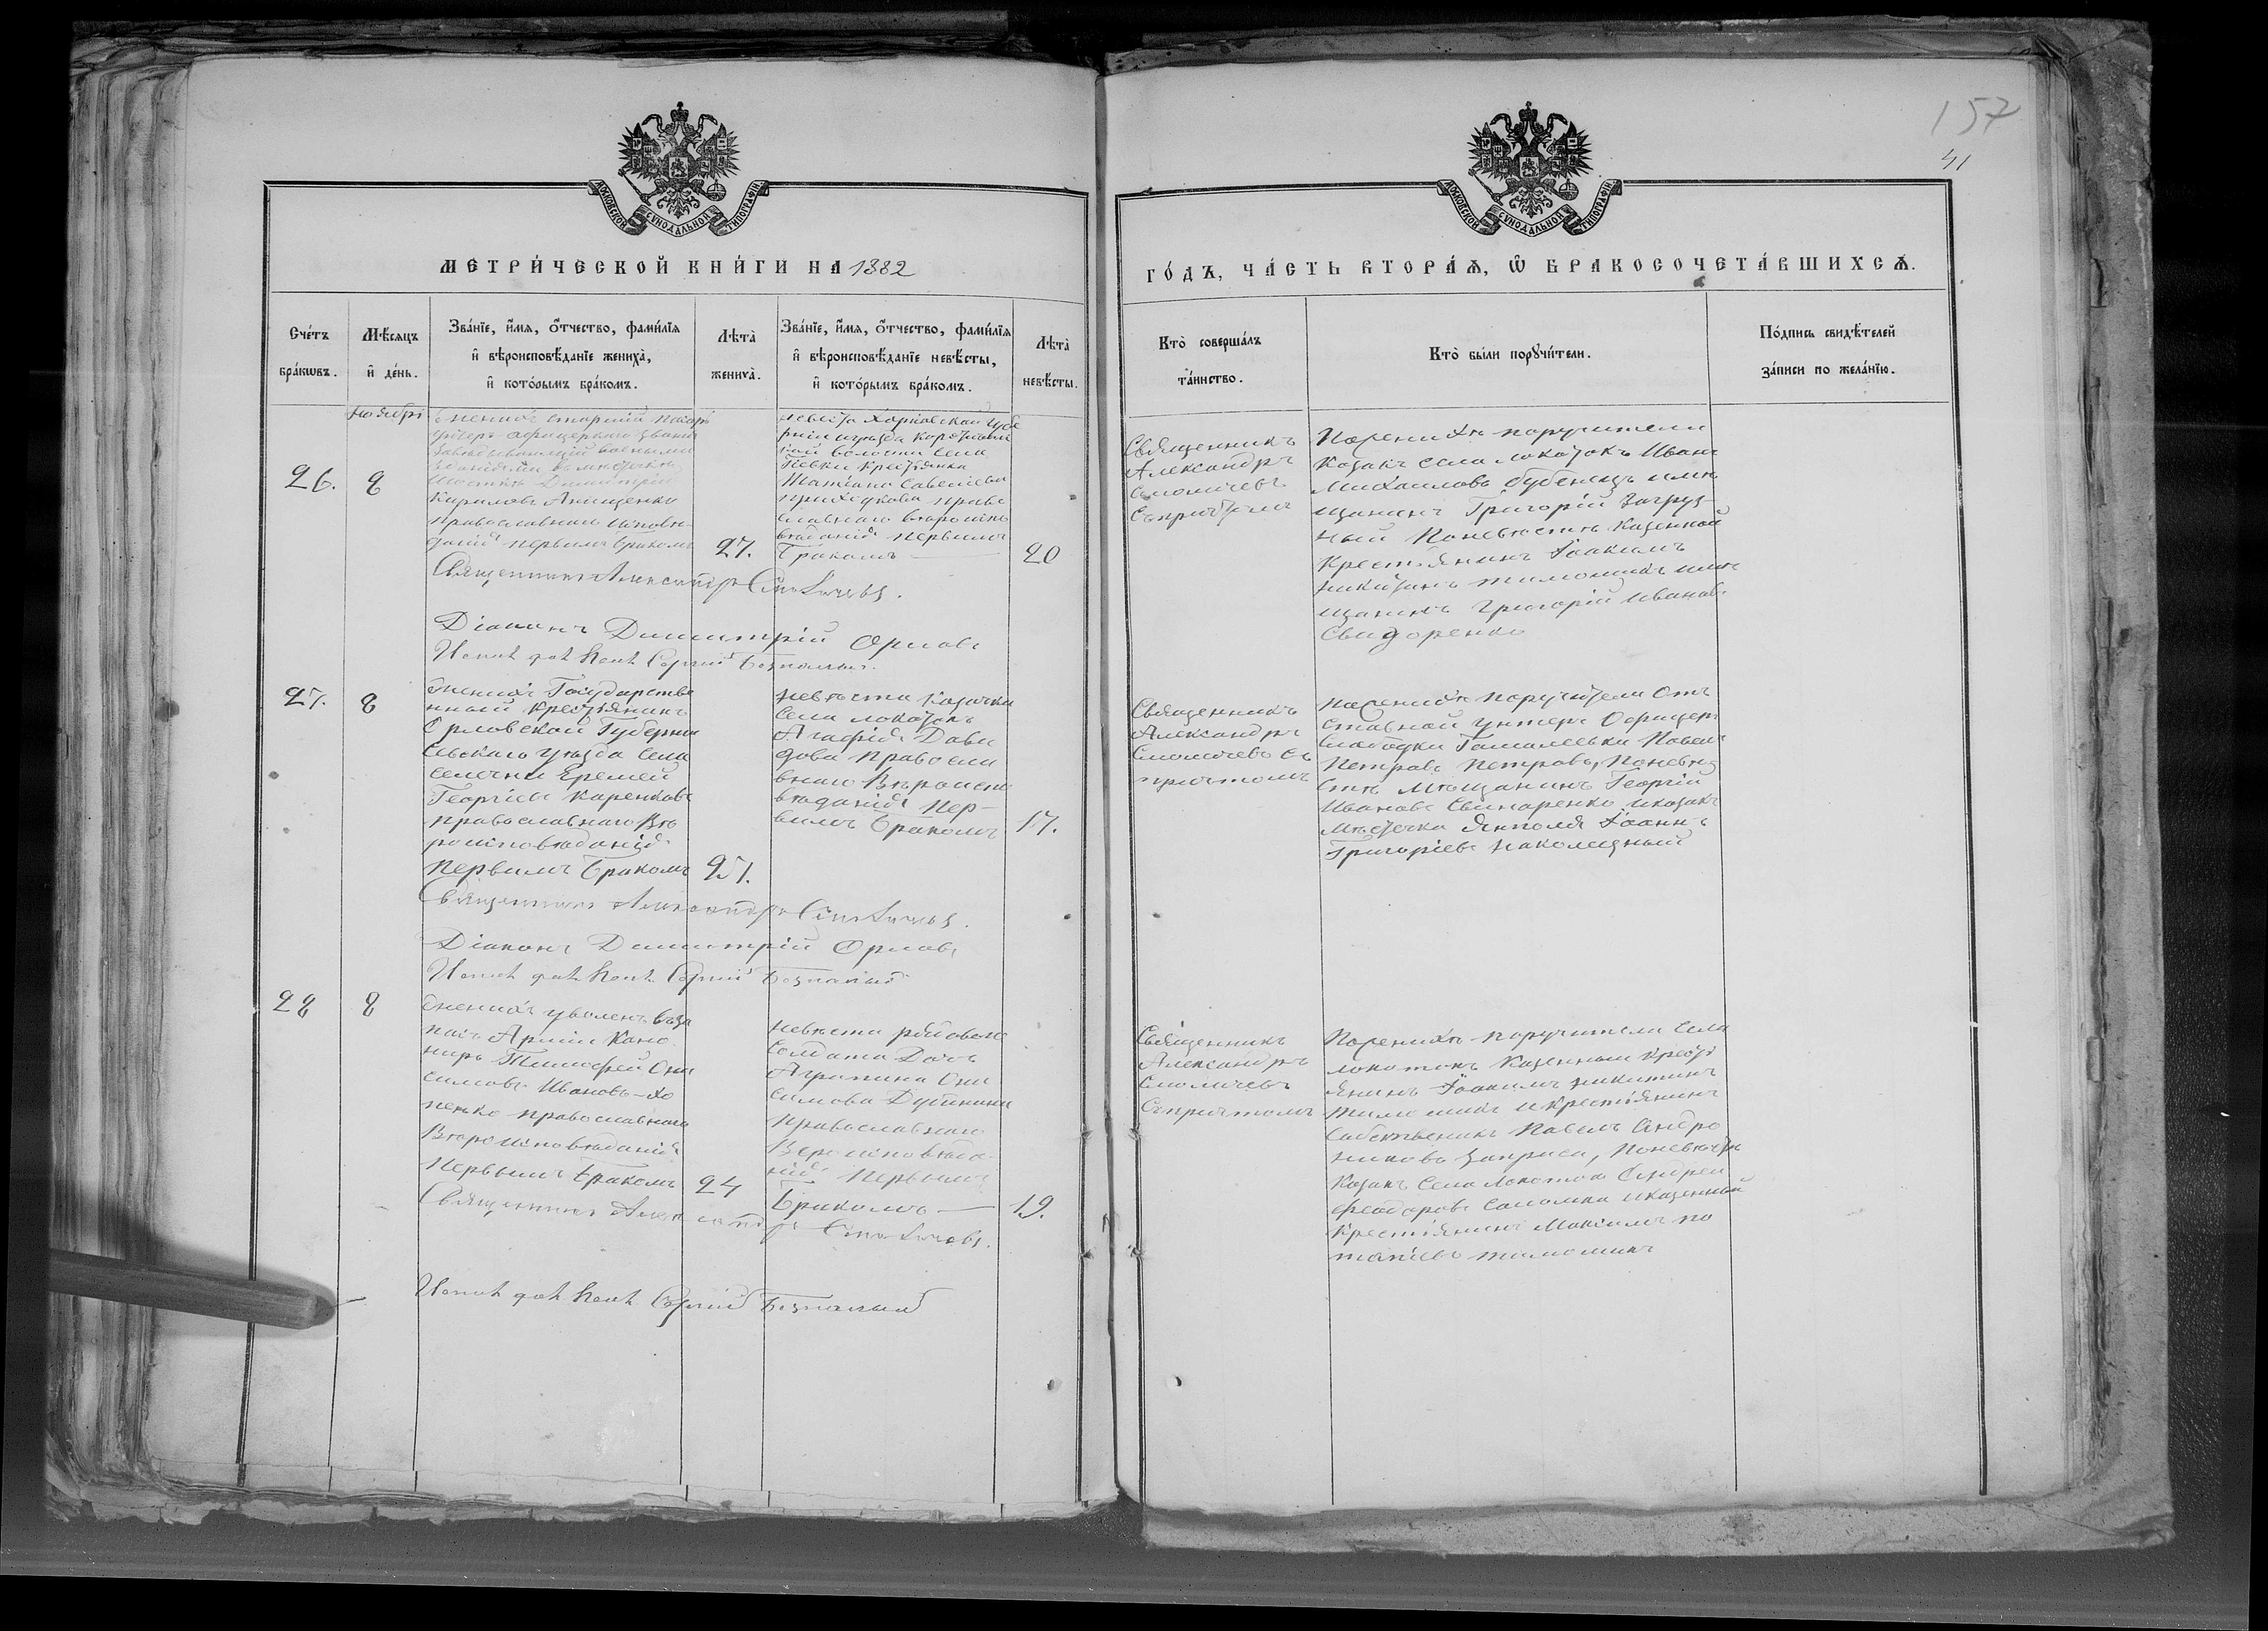 157
41
МОСКОВСКОЙ СѴНОДАЛЬНОЙ ТИПОГРАФІИ
МОСКОВСКОЙ СѴНОДАЛЬНОЙ ТИПОГРАФІИ
МЕТРИ́ЧЕСКОЙ КНИ́ГИ НА 1882
ГО́ДЪ, ЧА́СТЬ ВТОРА́Ѧ, Ѿ БРАКОСОЧЕТА́ВШИХСѦ.
Сче́тъ
бра́кѡвъ.
Мѣ́сѧцъ
и҆ де́нь.
Зва́нїе, и҆́мѧ, ѻ҆́тчество, фами́лїѧ
и҆ вѣроисповѣ́данїе жениха̀,
и҆ кото́рымъ бра́комъ.
Лѣта̀
жениха̀.
Зва́нїе, и҆́мѧ, ѻ҆́тчество, фами́лїѧ
и҆ вѣроисповѣ́данїе невѣ́сты,
и҆ кото́рымъ бра́комъ.
Лѣта̀
невѣ́сты.
Кто̀ соверша́лъ
та́инство.
Кто̀ бы́ли порꙋчи́тели.
По́дпись свидѣ́телей
за́писи по жела́нїю.
Ноября
26.
8
женихъ старшій писарь
офицерскаго званія
Завѣдывающій военными
Зданіями въ мѣстечкѣ
Димитрій
Кириловъ Анищенко
православнаго исповѣ-
данія первымъ бракомъ
27.
невѣста Харьковской губе
рніи уѣзда
кой волости села
крестьянка
Татіана Савелиева
право
славнаго вѣроиспо
вѣданія первымъ
бракомъ —
20
Священникъ
Александръ
Смоличевъ
Съ причтомъ
По женихѣ поручители
Козакъ села Локотокъ Иванъ
Михаиловъ Бубенецъ и мѣ
щанинъ Григорій Загруз-
ный По невѣстѣ Казенной
Крестьянинъ Іоакимъ
Никитинъ Тимошикъ и мѣ
щанинъ Григорій Ивановъ
Свидоренко
Священникъ Александръ Смоличевъ.
Діаконъ Димитрій Орловъ
27.
8
женихъ Государстве
нный крестьянинъ
Орловской Губерніи
Сѣвскаго уѣзда села
Селечни Еремей
Георгіевъ Каренковъ
православнаго Вѣ
роисповѣданія
первымъ бракомъ
25.
невѣста Козачка
Села Локотокъ
Агафія Дави
дова православ
внаго Вѣроиспо
вѣданія пер-
вымъ бракомъ
17.
Священникъ
Александръ
Смоличевъ съ
причтомъ
По женихѣ поручители От
ставной унтеръ Офицеръ
Слободки Гамалеевки Павел
Петровъ Петровъ, По невѣ
стѣ Мѣщанинъ Георгій
Ивановъ Свинаренко и козакъ
Мѣстечка Янполя Іоаннъ
Григоріевъ Наколецный
Священникъ Александръ Смоличевъ.
Діаконъ Димитрій Орловъ
28
8
женихъ уволен. въ за
пасъ Арміи Кано
ниръ Тимофей Они
симовъ Иванов-хо
ненко православнаго
Вѣроисповѣданія
первымъ бракомъ
24
невѣста рядоваго
Солдата Дочь
Агрипина Они
симова Дубинина
православнаго
Вероисповѣда
нія первымъ
бракомъ —
19.
Священникъ
Александръ
Смоличевъ
Съ причтомъ
По женихѣ поручители Села
Локотокъ Казенный Кресть
янинъ Іоакимъ Никитинъ
Тимошикъ и Крестьянинъ
Собственикъ Павелъ Андро
никовъ Заприса, По невѣстѣ
Козакъ Села Локотокъ Андрей
Феодоровъ Саломка и казенный
Крестьянинъ Максимъ По
тапіевъ Тимошикъ
Священникъ Александръ Смоличевъ.